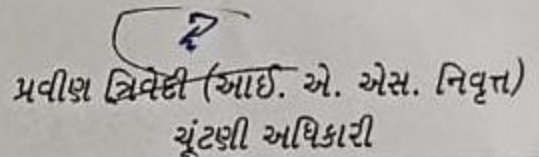 પ્રવીણ ત્રિવેદી (આઈ. એ. એસ. નિવૃત્ત)
ચૂંટણી અધિકારી